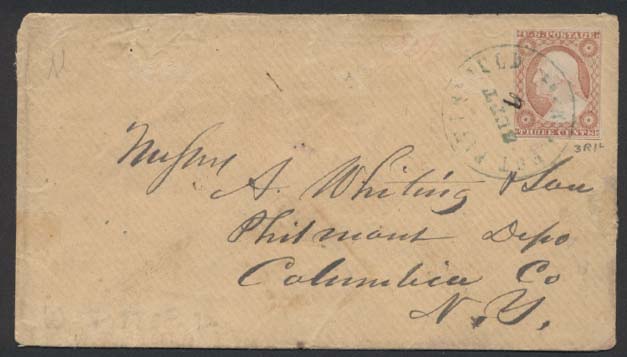 U.S. POSTAGE
THREE CENTS
3R1L
SEPT
9
Messrs A. Whiting & Son
Philmont Depo
Columbia Co
N.Y.